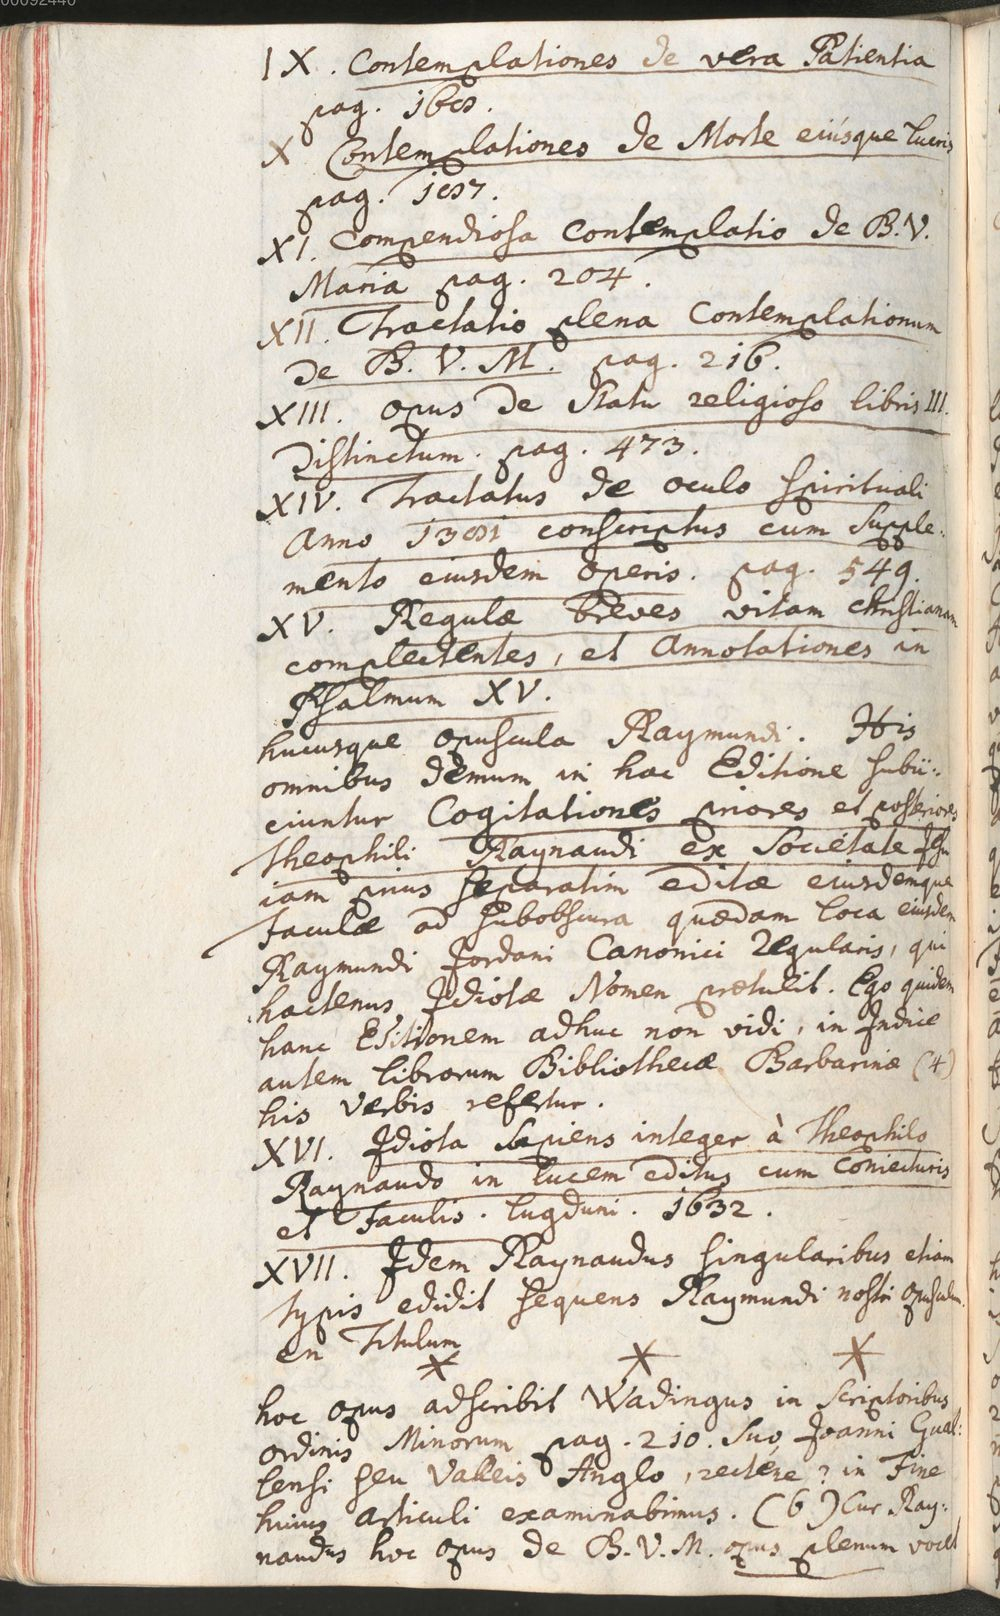 00092440
IX. Contemplationes de vera Patientia
pag. 168.
X Contemplationes de Morte eiúsque lucris
pag. 187.
XI. Compendiosa Contemplatio de B.V.
Maria pag. 204.
XII. Tractatio plena Contemplationum
de B. V. M. pag. 216.
XIII. opus de Statu religioso libris III.
distinctum. pag. 473.
XIV. Tractatus de oculo spirituali
Anno 1381 conscriptus cum Supple:
mento eiusdem operis. pag. 549.
XV. Regulæ breves vitam christianam
complectentes, et Annotationes in
Psalmum XV.
hucusque opuscula Raymundi. His
omnibus demum in hac Editione subii:
ciuntur Cogitationes priores et posteriores
Theophili Raynaudi ex Societate Jesu
iam prius separatim editæ eiusdemque
faculæ ad subobscura quædam loca eiusdem
Raymundi Jordani Canonici Regularis, qui
hactenus Idiotæ Nomen prætulit. Ego quidem
hanc Editionem adhuc non vidi, in Indice
autem librorum Bibliothecæ Barbarinæ (4)
his verbis refertur.
XVI. Idiota Sapiens integer à Theophilo
Raynaudo in lucem editus cum Coniecturis
et Faculis. Lugduni. 1632.
XVII. Idem Raynaudus singularibus etiam
typis edidit sequens Raymundi nostri opusculum
en Titulum
* * *
hoc opus adscribit Wadingus in Scriptoribus
ordinis Minorum pag. 210. suo Joanni Gual:
lensi seu Valleis Anglo, rectene? in Fine
huius articuli examinabimus. (6) Cur Ray:
naudus hoc opus de B. V. M. opus plenum vocet